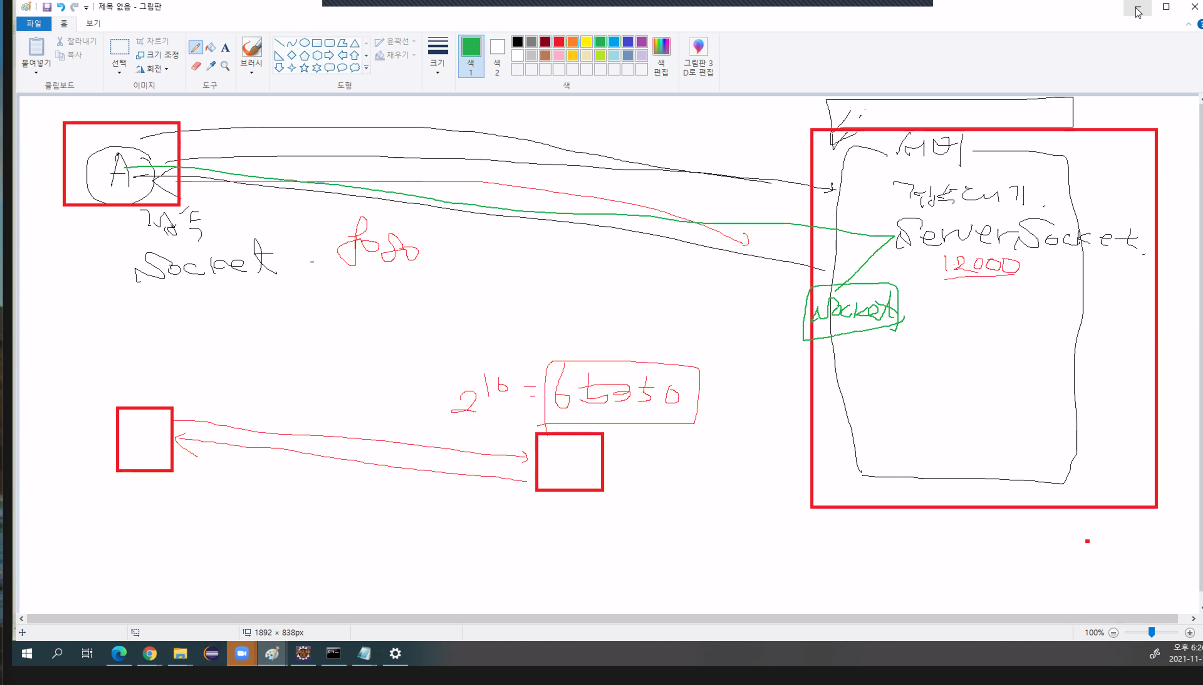 제목 없음 - 그림판
파일 홈 보기
붙여넣기
잘라내기
복사
클립보드
선택
자르기
크기 조정
회전
이미지
A
도구
브러시
윤곽선
채우기
도형
크기
색
1
색
2
색
편집
그림판 3
D로 편집
색
A
서버
접속대기
접속
Socket
ServerSocket
12000
Socket
2¹⁶ =
1892 × 838px
100%
오후 6:2
2021-11-